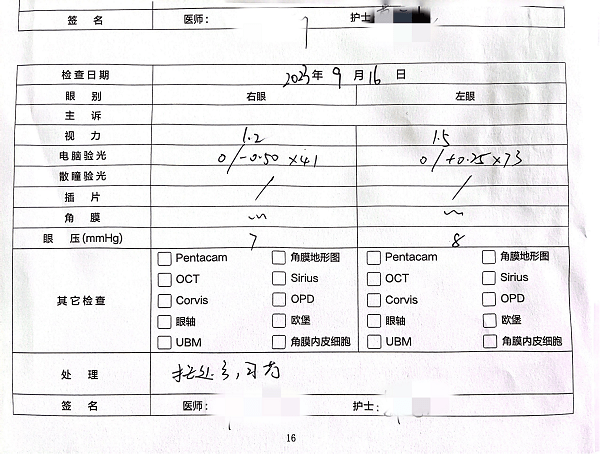 签 名 医师: 护士
检查日期 2023年 9 月 16 日
眼 别 右眼 左眼
主 诉
视 力 1.2 1.5
电脑验光 0/-0.50×41 0/+0.25×73
散瞳验光 / /
插 片 / /
角 膜
眼 压(mmHg) 7 8
其它检查
Pentacam 角膜地形图 Pentacam 角膜地形图
OCT Sirius OCT Sirius
Corvis OPD Corvis OPD
眼轴 欧堡 眼轴 欧堡
UBM 角膜内皮细胞 UBM 角膜内皮细胞
处 理
签 名 医师: 护士:
16